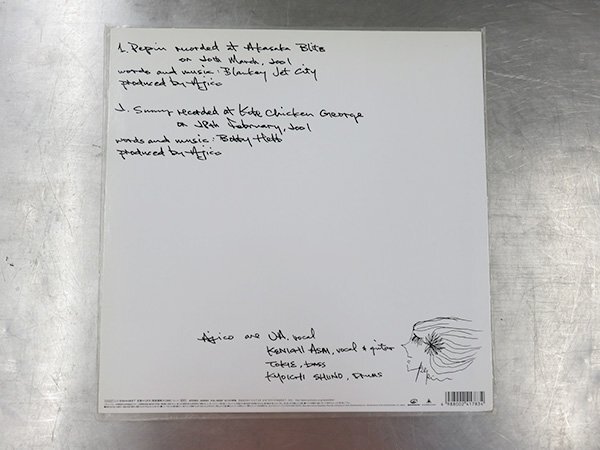 1. Pepin recorded at Akasaka Blitz
on 20th March, 2001
words and music: Blankey Jet City
produced by Ajico
2. Sunny recorded at Kobe Chicken George
on 28th February, 2001
words and music: Bobby Hebb
produced by Ajico
Ajico are UA, vocal
KENICHI ASAI, vocal & guitar
TOKIE, bass
KYOICHI SHIINO, drums
Pepin
4 988002 417834